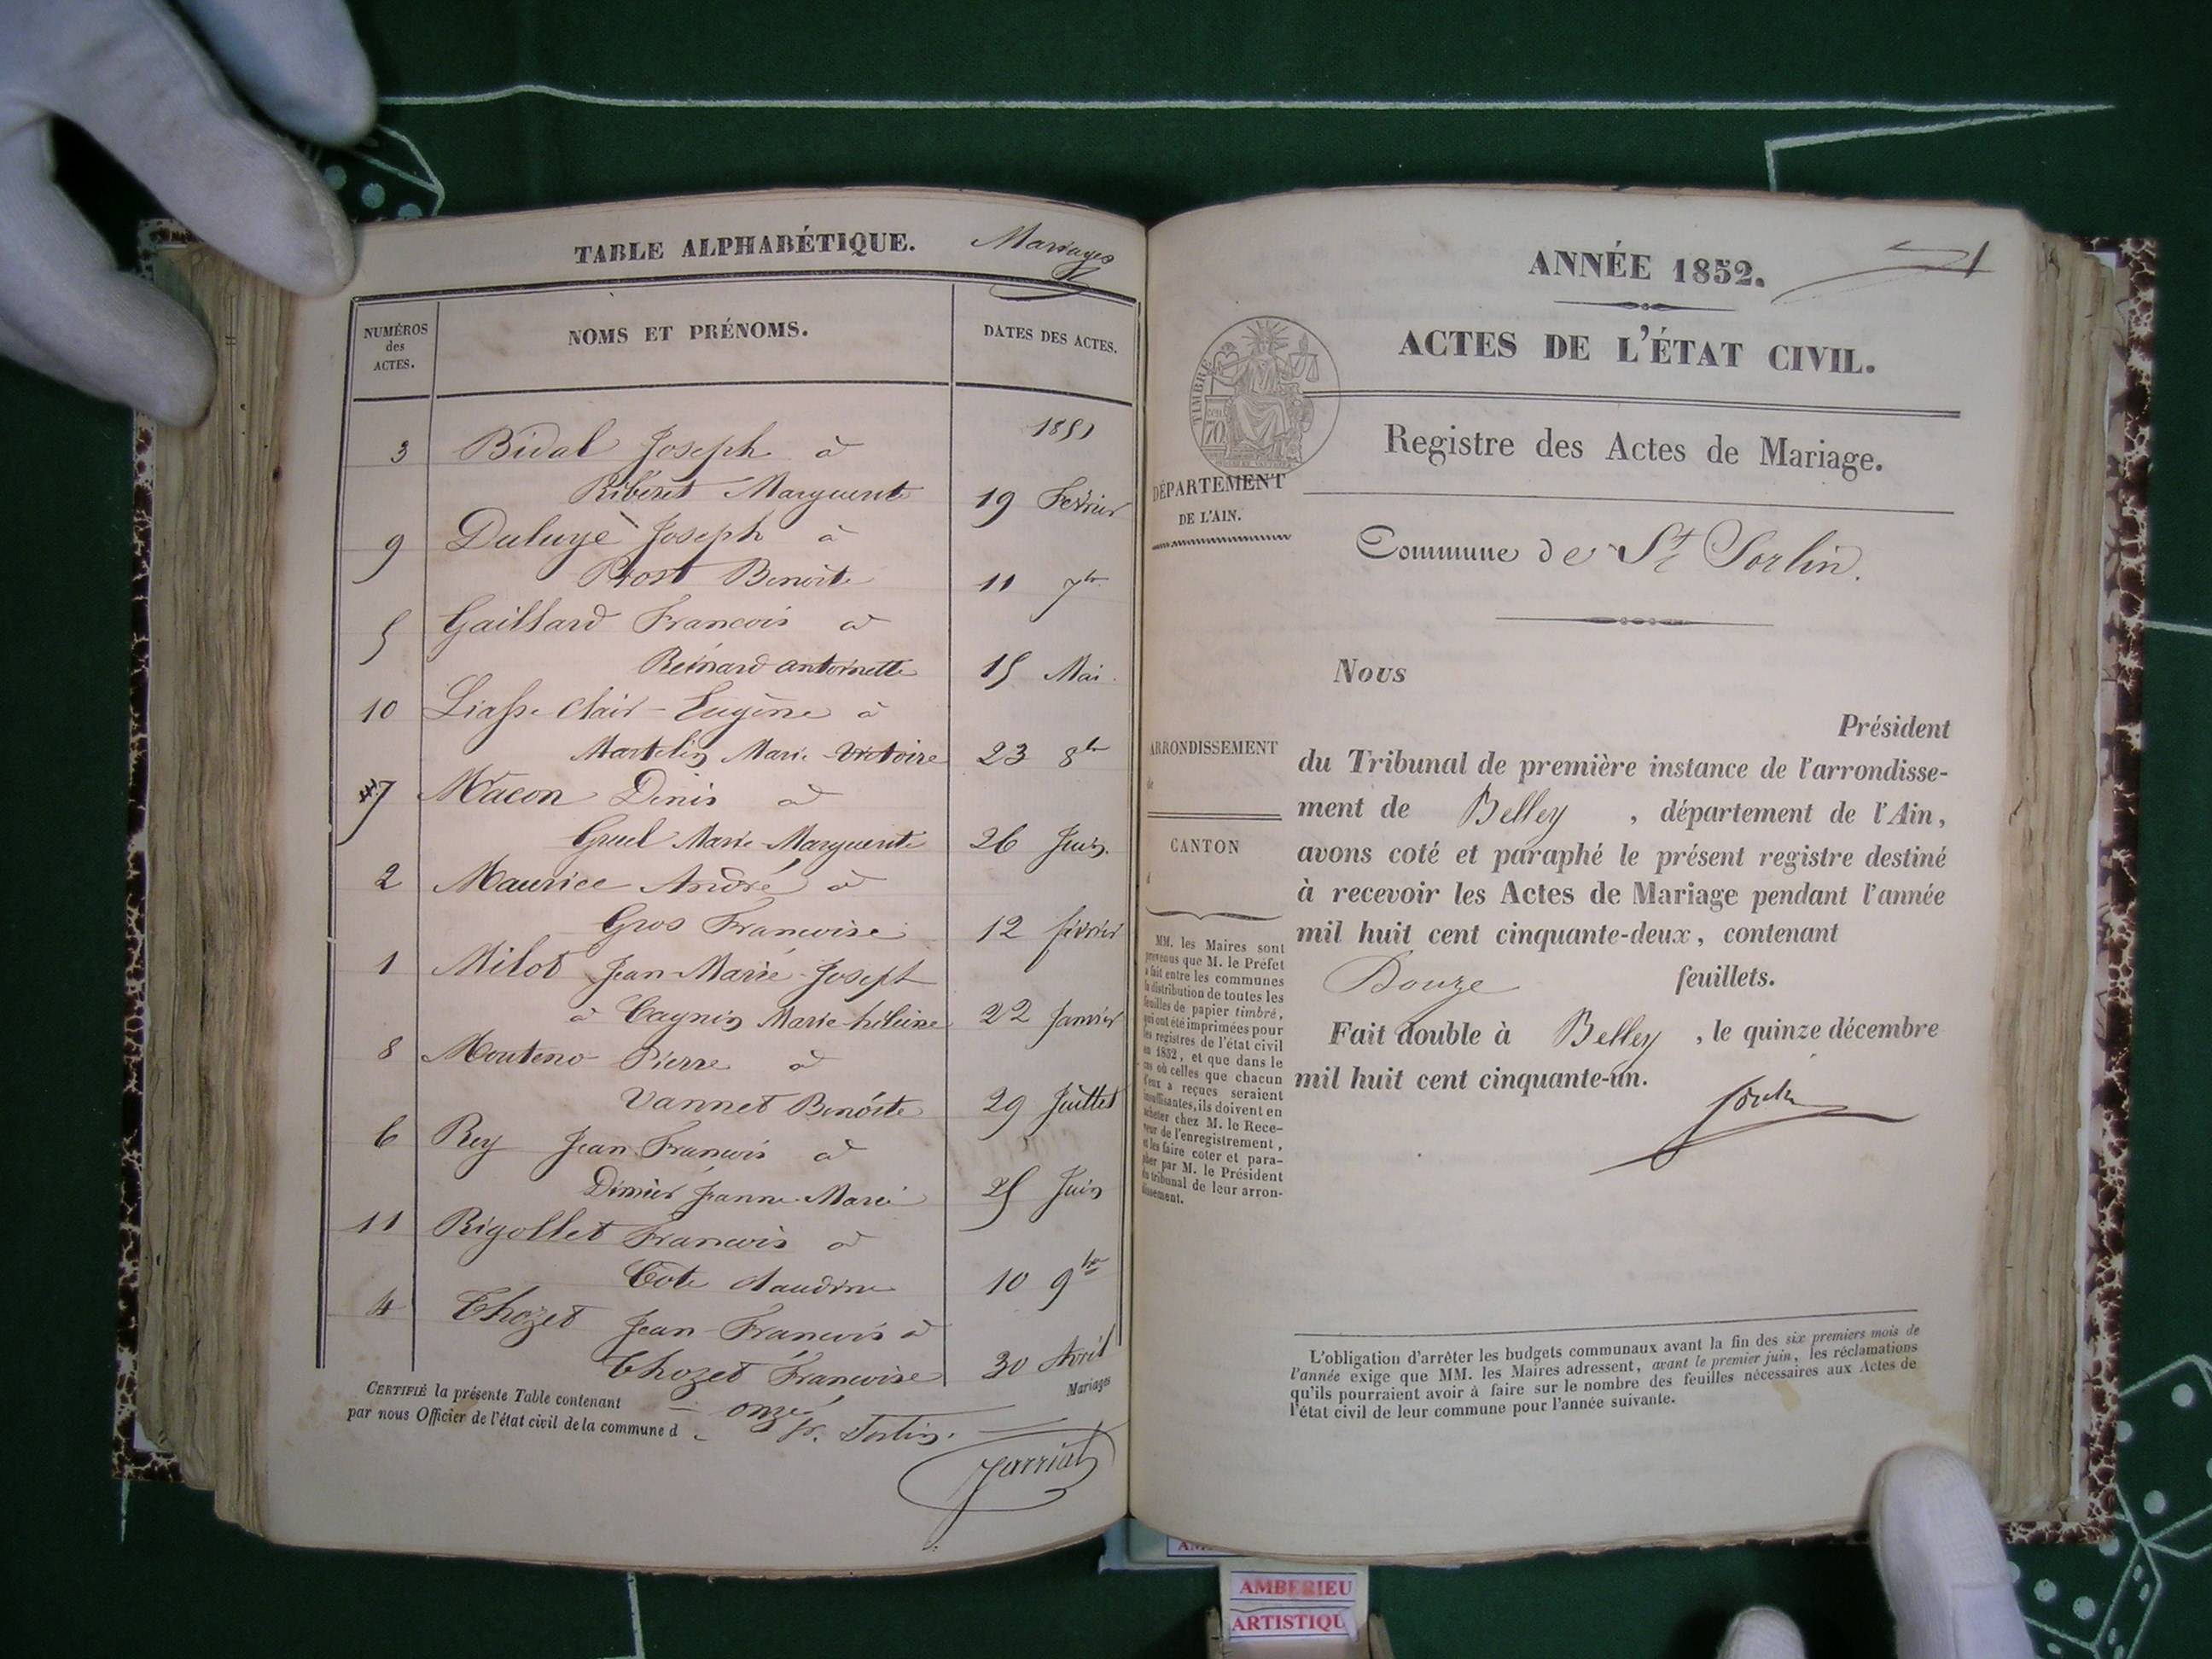 TABLE ALPHABÉTIQUE. Mariages
NUMÉROS
des
ACTES.
NOMS ET PRÉNOMS.
DATES DES ACTES.
1851
3 Bidal Joseph à
Ribéret Marguerite 19 Fevrier
9 Duluye Joseph à
Prost Benoite 11 7br
5 Gaillard Francois à
Reinard antoinette 15 Mai
10 Liasse Clair-Eugène à
Martelin Marie-Victoire 23 8br
7 Mâcon Denis à
Gruel Marie-Marguerite 26 Juin
2 Maurice André à
Gros Francoise 12 fevrier
1 Milot Jean-Marie-Joseph
à Cagnin Marie-héleine 22 Janvier
8 Monteno Pierre à
Vannet Benóite 29 Juillet
6 Rey Jean Francois à
Dimier Jeanne-Marie 25 Juin
11 Rigollet Francois à
Cote Claudine 10 9bre
4 Thozet Jean-Francois à
Thozet Francoise 30 Avril
CERTIFIÉ la présente Table contenant onze Mariages
par nous Officier de l'état civil de la commune d St. Sorlin.
Jarriat
ANNÉE 1852. 1
ACTES DE L'ÉTAT CIVIL.
TIMBRE
70
Registre des Actes de Mariage.
DÉPARTEMENT
DE L'AIN.
Commune de St Sorlin.
Nous
Président
du Tribunal de première instance de l'arrondisse-
ment de Belley, département de l'Ain,
avons coté et paraphé le présent registre destiné
à recevoir les Actes de Mariage pendant l'année
mil huit cent cinquante-deux, contenant
Douze feuillets.
Fait double à Belley, le quinze décembre
mil huit cent cinquante-un.
ARRONDISSEMENT
de
CANTON
d
MM. les Maires sont
prévenus que M. le Préfet
a fait entre les communes
la distribution de toutes les
feuilles de papier timbré,
qui ont été imprimées pour
les registres de l'état civil
en 1852, et que dans le
cas où celles que chacun
d'eux a reçues seraient
insuffisantes, ils doivent en
acheter chez M. le Rece-
veur de l'enregistrement,
et les faire coter et para-
pher par M. le Président
du tribunal de leur arron-
dissement.
L'obligation d'arrêter les budgets communaux avant la fin des six premiers mois de
l'année exige que MM. les Maires adressent, avant le premier juin, les réclamations
qu'ils pourraient avoir à faire sur le nombre des feuilles nécessaires aux Actes de
l'état civil de leur commune pour l'année suivante.
AMBERIEU
ARTISTIQU